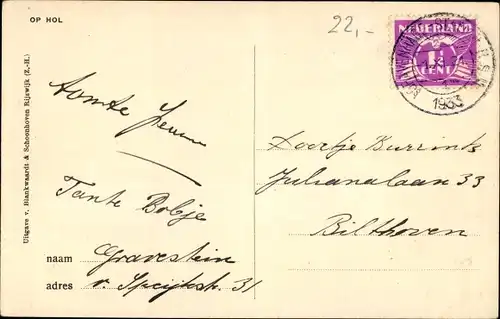 OP HOL
22,-
NEDERLAND
1½
CENT
1933
Tante Bobje
naam Gravestein
adres v. Speijkstr. 31
Doortje Kurrink
Julianalaan 33
Bilthoven
Uitgave v. Blankwaardt & Schoonhoven Rijswijk (Z.-H.)